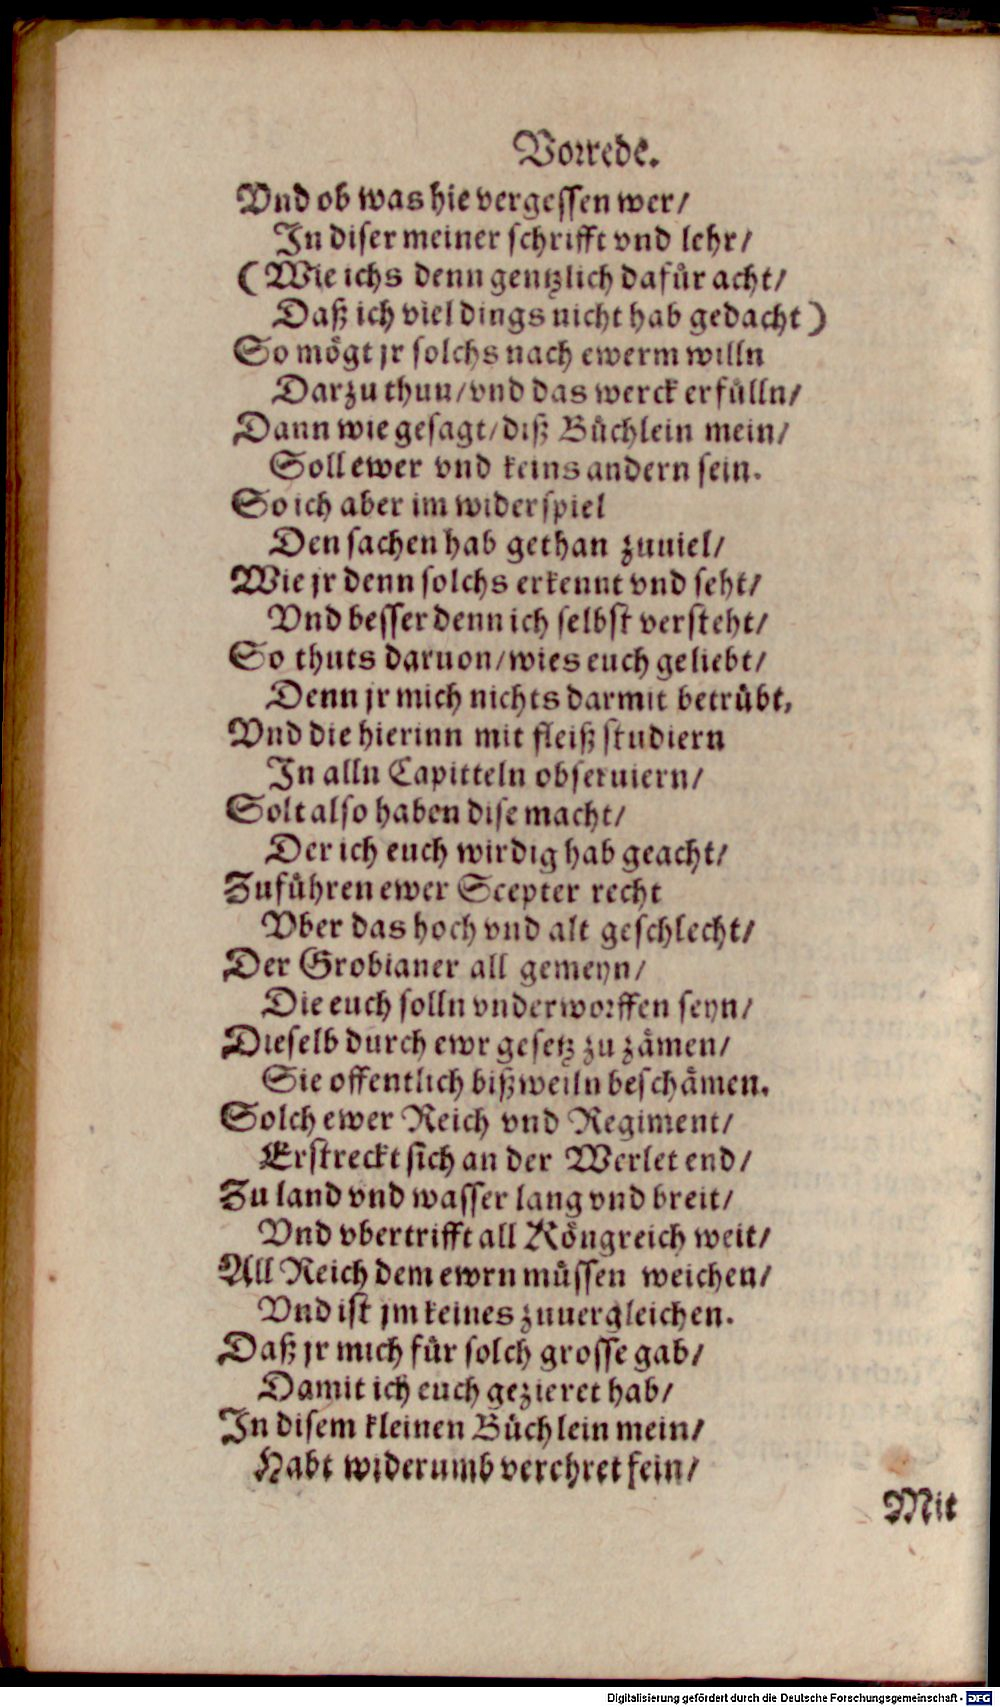 Vorrede.
Vnd ob was hie vergessen wer/
In diser meiner schrifft vnd lehr/
(Wie ichs denn gentzlich dafür acht/
Daß ich viel dings nicht hab gedacht)
So mögt jr solchs nach ewerm willn
Darzu thun/vnd das werck erfülln/
Dann wie gesagt/diß Büchlein mein/
Soll ewer vnd keins andern sein.
So ich aber im widerspiel
Den sachen hab gethan zuuiel/
Wie jr denn solchs erkennt vnd seht/
Vnd besser denn ich selbst versteht/
So thuts daruon/wies euch geliebt/
Denn jr mich nichts darmit betrübt,
Vnd die hierinn mit fleiß studiern
In alln Capitteln obseruiern/
Solt also haben dise macht/
Der ich euch wirdig hab geacht/
Zuführen ewer Scepter recht
Vber das hoch vnd alt geschlecht/
Der Grobianer all gemeyn/
Die euch solln vnderworffen seyn/
Dieselb durch ewr gesetz zu zämen/
Sie offentlich bißweiln beschämen.
Solch ewer Reich vnd Regiment/
Erstreckt sich an der Werlet end/
Zu land vnd wasser lang vnd breit/
Vnd vbertrifft all Köngreich weit/
All Reich dem ewrn müssen weichen/
Vnd ist jm keines zuuergleichen.
Daß jr mich für solch grosse gab/
Damit ich euch gezieret hab/
In disem kleinen Büchlein mein/
Habt widerumb verehret fein/
Mit
Digitalisierung gefördert durch die Deutsche Forschungsgemeinschaft - DFG